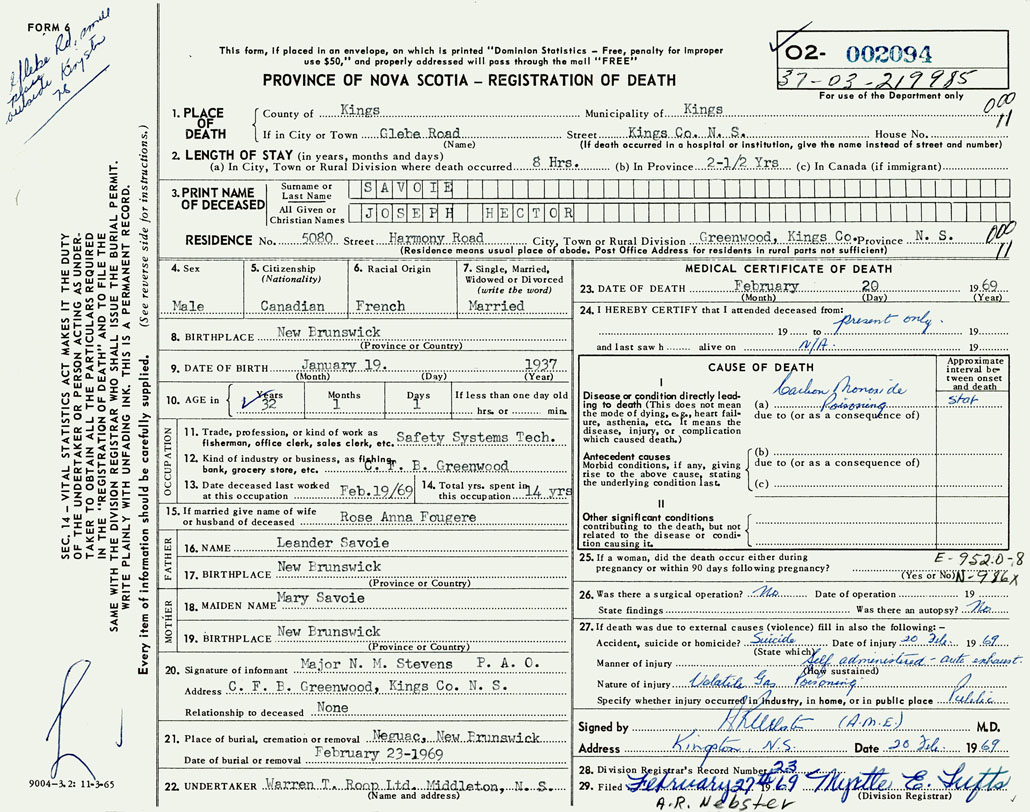 FORM 6
Glebe Rd, small
place
outside Kingston
76
This form, if placed in an envelope, on which is printed "Dominion Statistics – Free, penalty for improper
use $50," and properly addressed will pass through the mail "FREE"
PROVINCE OF NOVA SCOTIA – REGISTRATION OF DEATH
O2- 002094
37-03-219985
For use of the Department only
000
11
1. PLACE OF DEATH
County of Kings Municipality of Kings
If in City or Town Glebe Road Street Kings Co. N. S. House No.
(Name) (If death occurred in a hospital or institution, give the name instead of street and number)
2. LENGTH OF STAY (in years, months and days)
(a) In City, Town or Rural Division where death occurred 8 Hrs. (b) In Province 2-1/2 Yrs (c) In Canada (if immigrant)
3. PRINT NAME OF DECEASED
Surname or Last Name SAVOIE
All Given or Christian Names JOSEPH HECTOR
RESIDENCE No. 5080 Street Harmony Road City, Town or Rural Division Greenwood, Kings Co. Province N. S.
000
11
(Residence means usual place of abode. Post Office Address for residents in rural parts not sufficient)
4. Sex
Male
5. Citizenship
(Nationality)
Canadian
6. Racial Origin
French
7. Single, Married,
Widowed or Divorced
(write the word)
Married
8. BIRTHPLACE New Brunswick
(Province or Country)
9. DATE OF BIRTH January 19. 1937
(Month) (Day) (Year)
10. AGE in Years 32 Months 1 Days 1 If less than one day old
hrs. or min.
OCCUPATION
11. Trade, profession, or kind of work as
fisherman, office clerk, sales clerk, etc. Safety Systems Tech.
12. Kind of industry or business, as fishing,
bank, grocery store, etc. C. F. B. Greenwood
13. Date deceased last worked
at this occupation Feb.19/69
14. Total yrs. spent in
this occupation 14 yrs
15. If married give name of wife
or husband of deceased Rose Anna Fougere
FATHER
16. NAME Leander Savoie
17. BIRTHPLACE New Brunswick
(Province or Country)
MOTHER
18. MAIDEN NAME Mary Savoie
19. BIRTHPLACE New Brunswick
(Province or Country)
20. Signature of informant Major N. M. Stevens P. A. O.
Address C. F. B. Greenwood, Kings Co. N. S.
Relationship to deceased None
21. Place of burial, cremation or removal Neguac, New Brunswick
Date of burial or removal February 23-1969
22. UNDERTAKER Warren T. Roop Ltd. Middleton, N. S.
(Name and address)
MEDICAL CERTIFICATE OF DEATH
23. DATE OF DEATH February 20 1969
(Month) (Day) (Year)
24. I HEREBY CERTIFY that I attended deceased from:
19 to present only. 19
and last saw h alive on N/A 19
CAUSE OF DEATH
Approximate
interval be-
tween onset
and death
I
Disease or condition directly lead-
ing to death (This does not mean
the mode of dying, e.g., heart fail-
ure, asthenia, etc. It means the
disease, injury, or complication
which caused death.)
(a) Carbon Monoxide
Poisoning
due to (or as a consequence of)
stat
Antecedent causes
Morbid conditions, if any, giving
rise to the above cause, stating
the underlying condition last.
(b)
due to (or as a consequence of)
(c)
II
Other significant conditions
contributing to the death, but not
related to the disease or condi-
tion causing it.
25. If a woman, did the death occur either during
pregnancy or within 90 days following pregnancy?
(Yes or No)
E-952.0-8
N-986x
26. Was there a surgical operation? No Date of operation 19
State findings Was there an autopsy? No.
27. If death was due to external causes (violence) fill in also the following: –
Accident, suicide or homicide? Suicide Date of injury 20 Feb. 1969
(State which)
Manner of injury Self administered - auto exhaust.
(How sustained)
Nature of injury Volatile Gas Poisoning
Specify whether injury occurred in industry, in home, or in public place Public
Signed by (A.M.E) M.D.
Address Kingston, N.S. Date 20 Feb. 1969
28. Division Registrar's Record Number 23
29. Filed February 27th 1969 Myrtle E. Tufts
(Division Registrar)
A.R. Webster
SEC. 14 – VITAL STATISTICS ACT MAKES IT THE DUTY
OF THE UNDERTAKER OR PERSON ACTING AS UNDER-
TAKER TO OBTAIN ALL THE PARTICULARS REQUIRED
IN THE "REGISTRATION OF DEATH" AND TO FILE THE
SAME WITH THE DIVISION REGISTRAR WHO SHALL ISSUE THE BURIAL PERMIT.
WRITE PLAINLY WITH UNFADING INK. THIS IS A PERMANENT RECORD.
Every item of information should be carefully supplied. (See reverse side for instructions.)
9004-3.2: 11-3-65